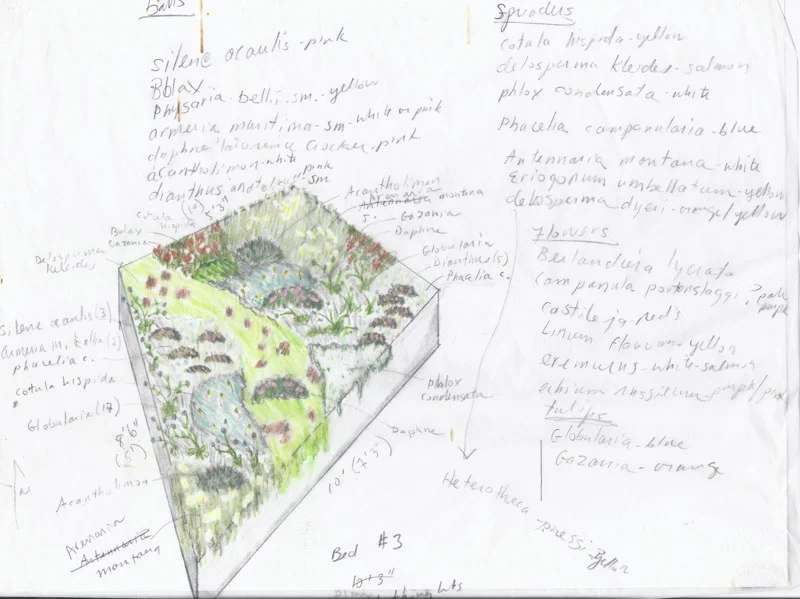 Balls
silene acaulis - pink
Bolax
Physaria bellii - sm. - yellow
armeria maritima - sm - white or pink
daphne lawrence crocker - pink
acantholimon - white pink
dianthus - sm
Spreaders
cotula hispida - yellow
delosperma Kleides - salmon
phlox condensata - white
Phacelia campanularia - blue
Antennaria montana - white
Eriogonum umbellatum - yellow
delosperma dyeri - orange/yellow
Flowers
Berlandiera lyrata
Campanula portenslaggi ? pale purple
Castileja - reds
Linum flavum - yellow
eremurus - white - salmon
echium russilum - purple/pink
tulips
Globularia - blue
Gazania - orange
Heterotheca jonesii - yellow
cotula hispida
(10')
5'3"
Bolax
Gazania
Delosperma
Kelaides
Acantholimon
Arenaria
Antennaria montana
5.
Gazania
Daphne
Globularia
Dianthus (5)
Phacelia c.
silene acaulis (3)
Armeria m, bellii (2)
phacelia c.
cotula hispida
Globularia (17)
8'6"
N
Acantholimon
Arenaria
Antennaria
montana
Phlox
condensata
Daphne
10' (7'3")
Bed #3